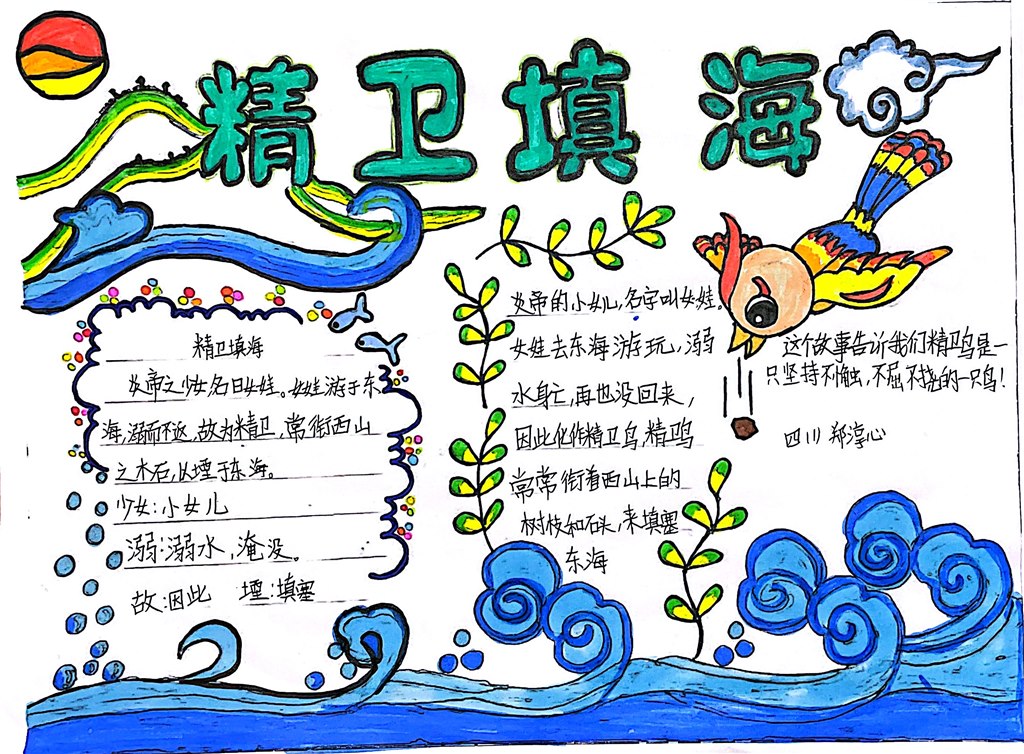 精卫填海
精卫填海
炎帝之少女名曰女娃。女娃游于东
海,溺而不返,故为精卫,常衔西山
之木石,以堙于东海。
少女:小女儿
溺:溺水,淹没。
故:因此 堙:填塞
炎帝的小女儿,名字叫女娃。
女娃去东海游玩,溺
水身亡,再也没回来,
因此化作精卫鸟,精鸣
常常衔着西山上的
树枝和石头,来填塞
东海
这个故事告诉我们精卫鸟是一
只坚持不触,不屈不挠的一只鸟!
四川 郑淳心